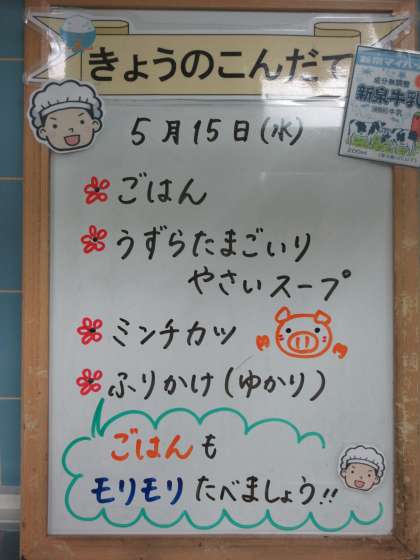 きょうのこんだて
成分無調整
新泉牛乳
200ml
5月15日(水)
ごはん
うずらたまごいり
やさいスープ
ミンチカツ
ふりかけ(ゆかり)
ごはんも
モリモリたべましょう!!